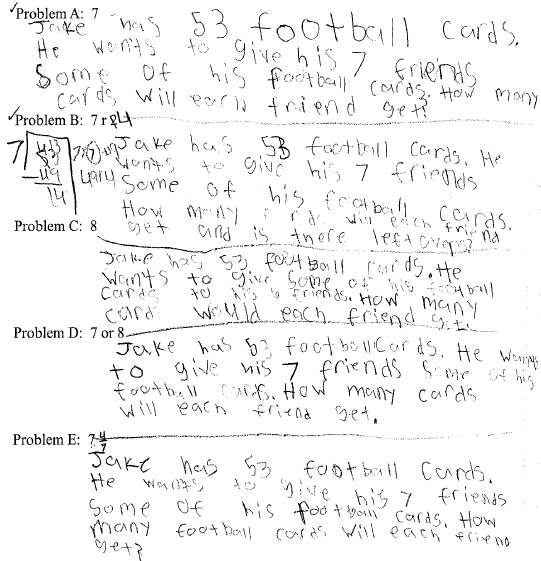 ✓Problem A: 7
Jake has 53 football cards.
He wants to give his 7 friends
Some of his football cards. How many
cards will each friend get?
✓Problem B: 7 r 4
7 53
- 49
4r4
Jake has 53 football cards. He
wants to give his 7 friends
Some of his football cards.
How many cards will each friend
get and is there left overs?
Problem C: 8
Jake has 53 football cards. He
wants to give some of his football
cards to his 6 friends. How many
card would each friend get.
Problem D: 7 or 8
Jake has 53 football cards. He wants
to give his 7 friends some of his
football cards. How many cards
will each friend get.
Problem E: 7 4/7
Jake has 53 football cards.
He wants to give his 7 friends
Some of his football cards. How
many football cards will each friend
get?